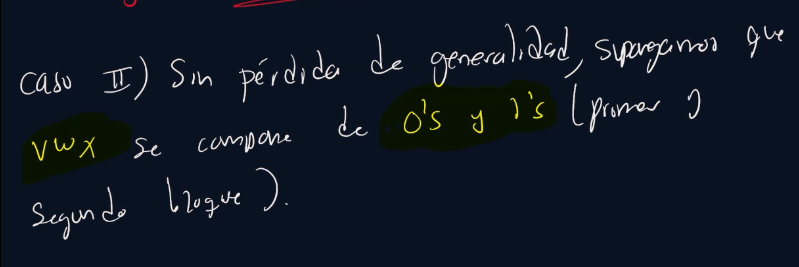 Caso II) Sin pérdida de generalidad, supongamos que
vwx se compone de 0's y 1's (primer y
segundo bloque).